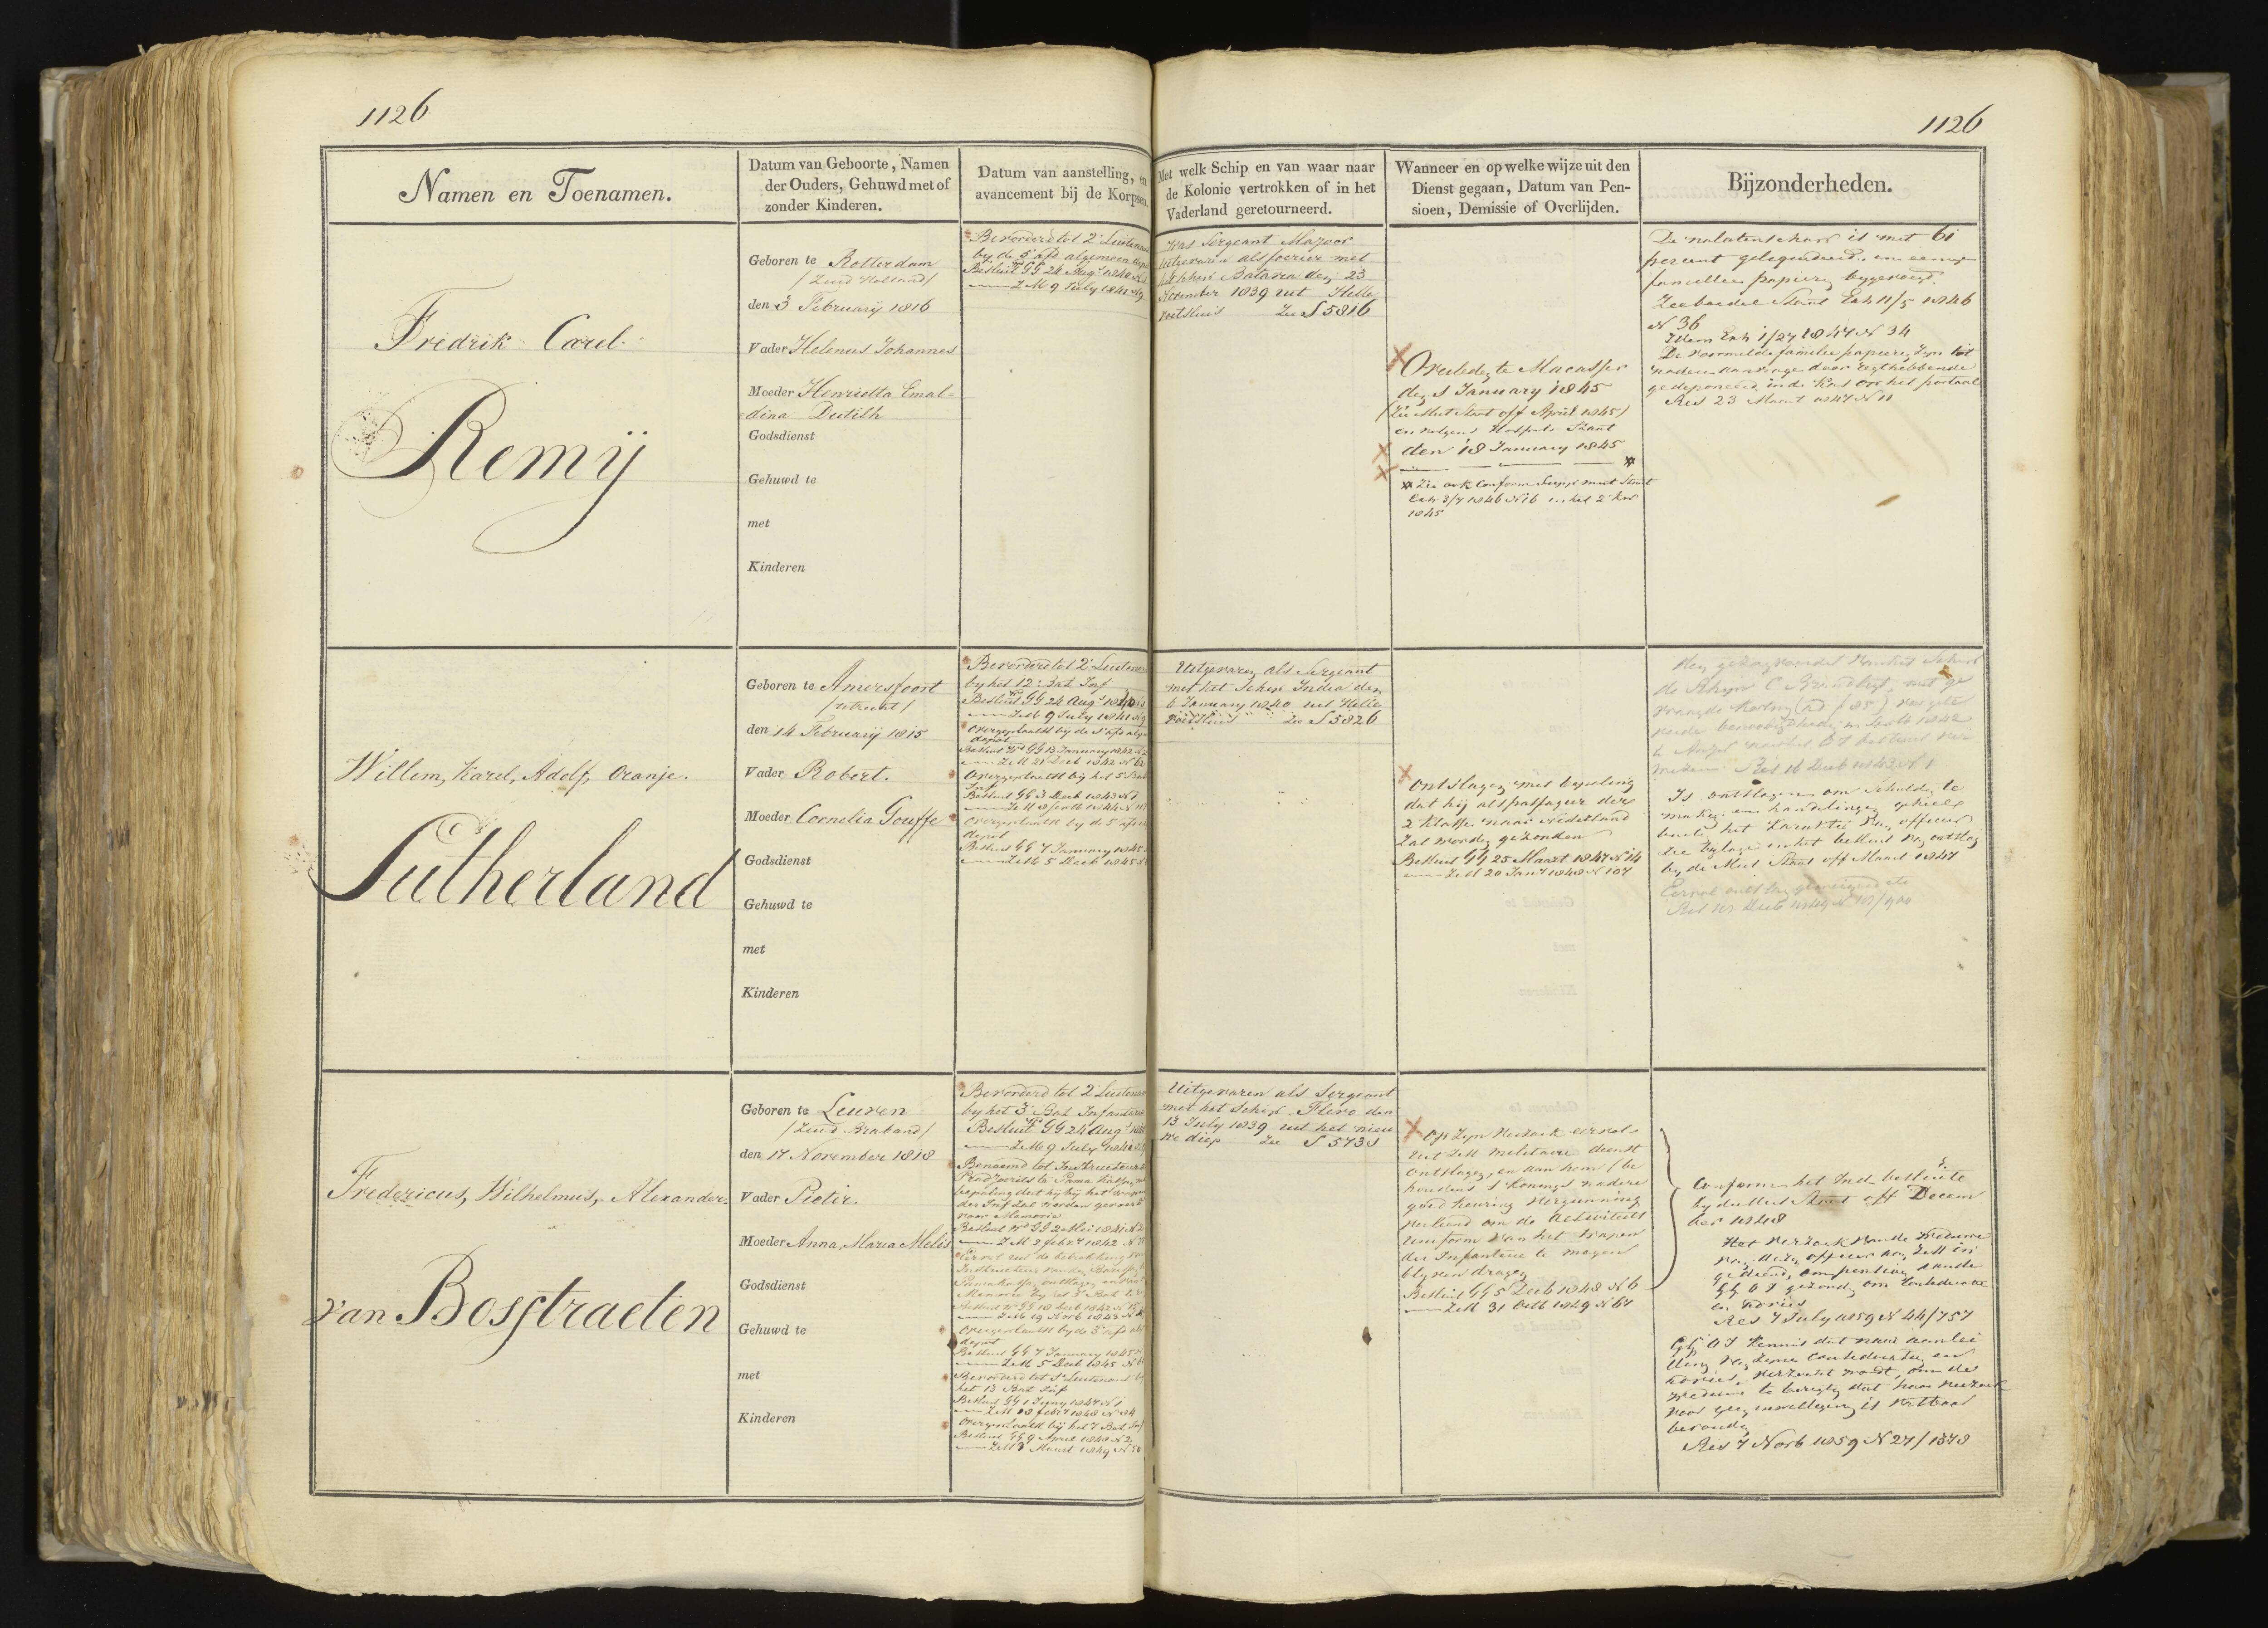 1126
1126
Namen en Toenamen.
Datum van Geboorte, Namen
der Ouders, Gehuwd met of
zonder Kinderen.
Datum van aanstelling, en
avancement bij de Korpsen.
Met welk Schip en van waar naar
de Kolonie vertrokken of in het
Vaderland geretourneerd.
Wanneer en op welke wijze uit den
Dienst gegaan, Datum van Pen-
sioen, Demissie of Overlijden.
Bijzonderheden.
Fredrik Carel
Remij
Geboren te Rotterdam
/Zuid Holland/
den 3 February 1816
Vader Helenus Johannes
Moeder Henrietta Emal=
=dina Dutilh
Godsdienst
Gehuwd te
met
Kinderen
Bevorderd tot 2e Luitenant
by de 5e afd algemeen
Besluit GG 24 Aug 1840
ZM 9 July 1841
Was Sergeant Majoor
Uitgevaren als foerier met
het schip Batavia den 23
November 1839 uit Helle
voetsluis Zie S 5816
Overleden te Macasser
den 1 January 1845
/Zie Mut Staat off April 1845/
en volgens Hospita Staat
den 18 January 1845
Zie ook Conform Supp mut Staat
Exh 3/7 1846 N 16 in het 2e kw
1845
De nalatenschap is met 61
percent gelegendeerd, en eenige
famillie papieren bygevoegd.
Zee boedel Staat Exh 11/5 1846
N 36
Idem Exh 1/27 1847 N 34
De voormelde familie papieren zyn tot
nadere aanvrage door regthebbende
gedeponeerd in de Kas op het portaal
Res 23 Maart 1847 N 11
Willem, Karel, Adolf, Oranje.
Sutherland
Geboren te Amersfoort
/Utrecht/
den 14 February 1815
Vader Robert.
Moeder Cornelia Gouffe
Godsdienst
Gehuwd te
met
Kinderen
Bevorderd tot 2e Luitenant
by het 12e Bat Inf
Besluit GG 24 Aug 1840
ZM 9 July 1841
Overgeplaatst by de 5e afd alg
depot
Besluit GG 13 January 1842
ZM 21 Decb 1842 N 62
Overgeplaatst bij het 5 Bat
Inf
Besluit GG 3 Decb 1843 N 1
Overgeplaatst by de 5e afd
depot
Besluit GG 7 January 1845
ZM 5 Decb 1845
Uitgevaren als Sergeant
met het Schip India den
6 January 1840 uit Helle
voetsluis Zie S 5826
Ontslagen met bepaling
dat hij als passagier der
2 Klasse naar Nederland
Zal worden gezonden
Besluit GG 25 Maart 1847 N 14
ZM 20 Jany 1848 N 107
Res 16 Decb 1843 N 1
Is ontslagen om Schulden te
maken en handelingen geheel
buiten het karakter van officier
Zie bylage in het besluit van ontslag
by de Mut Staat off Maart 1847
Eervol ontslag geweigerd
Fredericus, Wilhelmus, Alexander.
van Bosstraeten
Geboren te Leuven
/Zuid Braband/
den 17 November 1818
Vader Pieter.
Moeder Anna, Maria Melis
Godsdienst
Gehuwd te
met
Kinderen
Bevorderd tot 2e Luitenant
by het 3e Bat Infanterie
Besluit GG 24 Aug 1840
ZM 9 July 1841
Benoemd tot Instructeur
bepaling dat hij bij het wapen
der Inf zal worden gevoerd
voor Memorie
Besluit GG 20 Mei 1841
ZM 2 febr 1842
Overgeplaatst by de 3e afd alg
depot
Besluit GG 7 January 1845
ZM 5 Decb 1845
Bevorderd tot 1e Luitenant by
het 13 Bat Inf
Besluit GG 1 Juny 1847 N 1
ZM 28 febr 1848 N 84
Overgeplaatst bij het 7 Bat Inf
Besluit GG 9 April 1848 N 2
ZM 8 Maart 1849 N 50
Uitgevaren als Sergeant
met het Schip Flero den
13 July 1839 uit het nieu
we diep Zie S 5738
Op Zyn Verzoek eervol
uit ZM Militaire dienst
ontslagen, en aan hem (be
houdens S Konings nadere
goed keuring Vergunning
Verleend om de activiteits
Uniform van het wapen
der Infanterie te mogen
blyven dragen
Besluit GG 5 Decb 1848 N 6
ZM 31 Octb 1849 N 67
Conform het Ind besluit
by de Mut Staat off Decem
ber 1848
Het Verzoek van de Weduwe
van dezen officier aan ZM in
gediend, om pensioen aan de
GG O I gezonden om Consideratie
en advies
Res 7 July 1859 N 44/757
GG O I Kennis dat naar aanlei
ding van Zyne Consideratien en
advies, Verzocht wordt, om de
weduwe te berigten dat haar verzoek
voor geen inwilliging is vatbaar
bevonden
Res 7 Novb 1859 N 27/1378